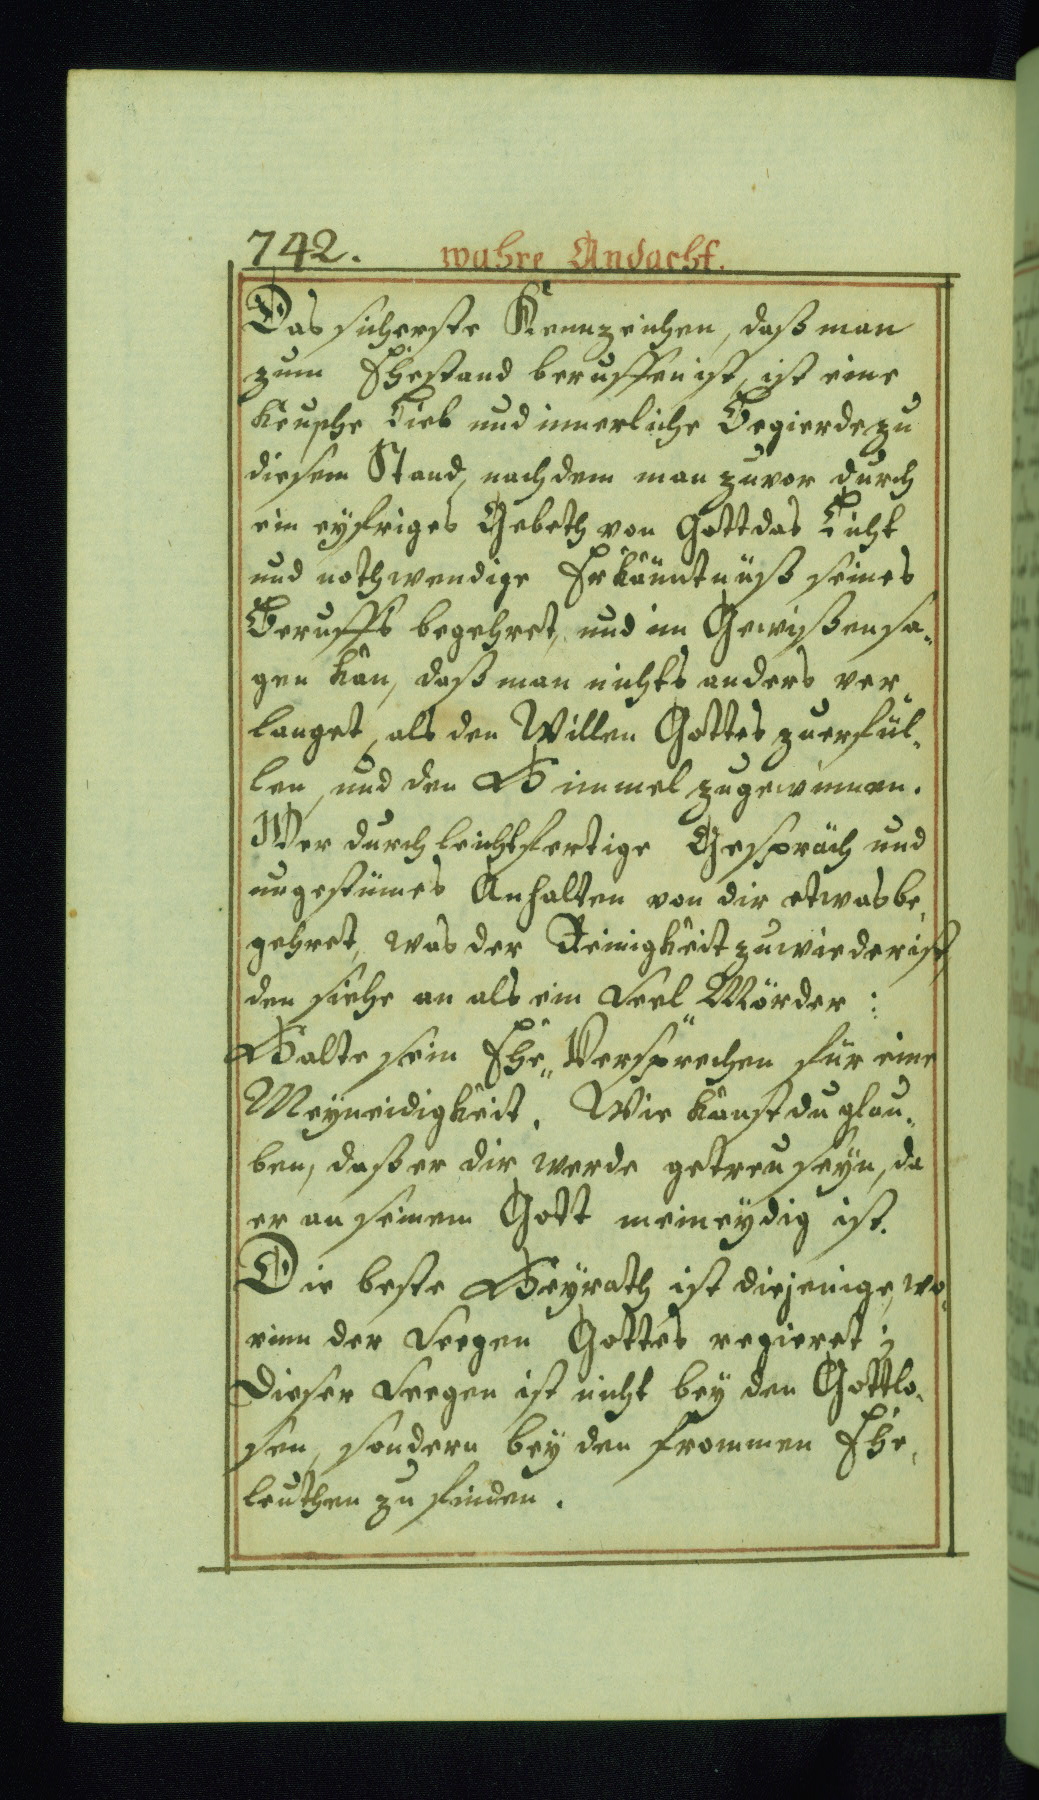 742. wahre Andacht.
Das sicherste Kennzeichen, daß man
zum Ehestand beruffen ist, ist eine
keusche Lieb und innerliche Begierde zu
diesem Stand, nachdem man zuvor durch
ein eyfriges Gebeth von Gott das Licht
und nothwendige Erkänntnüß seines
Beruffs begehret, und im Gewißen sa„
gen kan, daß man nichts anders ver„
langet, als den Willen Gottes zu erfül„
len, und den Himmel zugewinnen.
Wer durch leichtfertige Gespräch und
ungestümes Anhalten von dir etwas be„
gehret, was der Reinigkeit zuwieder ist,
den siehe an als ein Seel Mörder:
Halte sein Ehe„Versprechen für eine
Meyneidigkeit. Wie kanst du glau„
ben, daß er dir werde getreu seyn, da
er an seinem Gott meineydig ist.
Die beste Heyrath ist diejenige, wo„
rinn der Seegen Gottes regieret;
Dieser Seegen ist nicht bey den Gottlo„
sen, sondern bey den frommen Ehe„
leuthen zu finden.